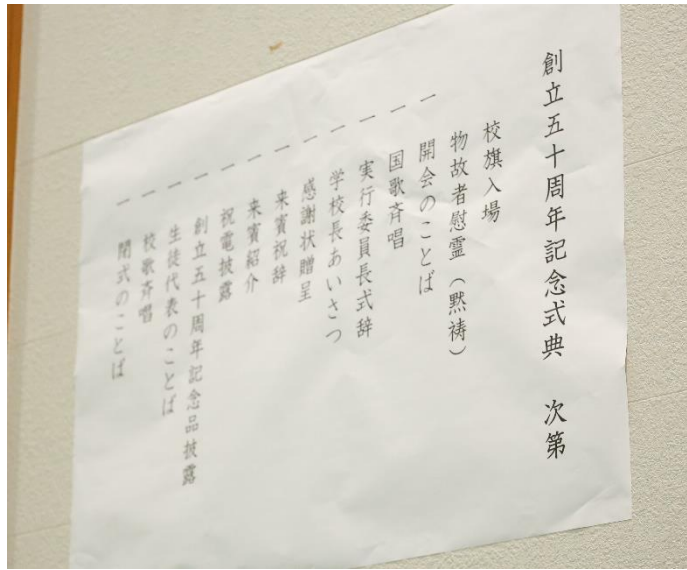 創立五十周年記念式典　次第
校旗入場
物故者慰霊（黙祷）
一　開会のことば
一　国歌斉唱
一　実行委員長式辞
一　学校長あいさつ
一　感謝状贈呈
一　来賓祝辞
一　来賓紹介
一　祝電披露
一　創立五十周年記念品披露
一　生徒代表のことば
一　校歌斉唱
一　閉式のことば